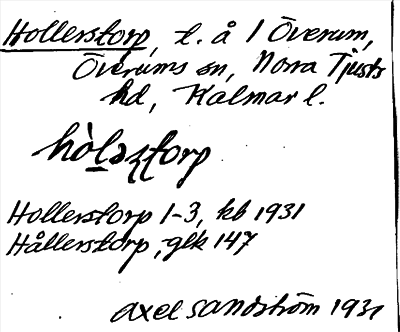 Hollerstorp, t. å 1 Överum,
Överums sn, Norra Tjusts
hd, Kalmar l.
hòləʂʈorp
Hollerstorp 1-3, kb 1931
Hållerstorp, glk 147
Axel Sandström 1931